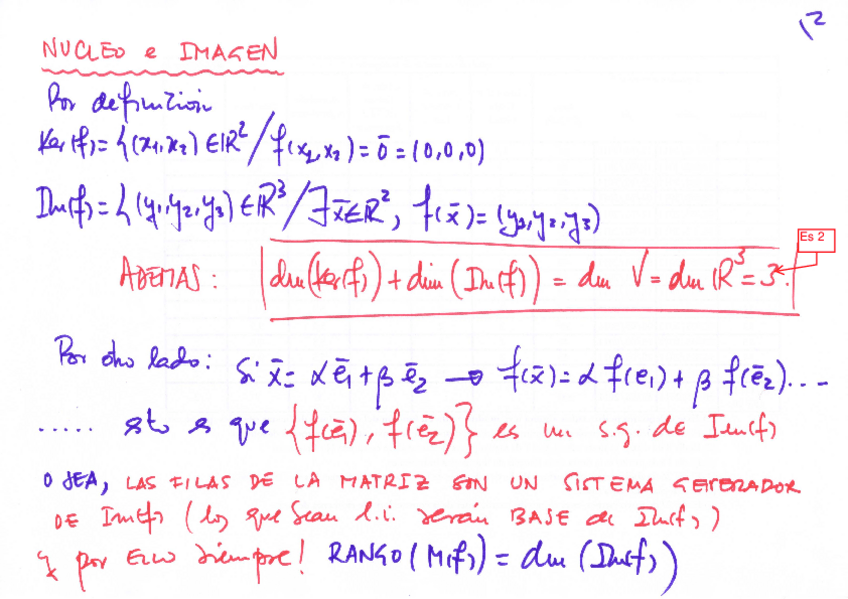 12
NUCLEO e IMAGEN
Por definición
Ker(f)={(x1,x2)∈R²/f(x1,x2)=ō=(0,0,0)
Im(f)={(y1,y2,y3)∈R³/∃x̄∈R², f(x̄)=(y1,y2,y3)
Es 2
ADEMAS: dim(Ker(f))+dim(Im(f))=dim V=dim R³=3.
Por otro lado: Si x̄=αē1+βē2 → f(x̄)=αf(e1)+βf(ē2)....
..... esto es que {f(ē1),f(ē2)} es un s.g. de Im(f)
O SEA, LAS FILAS DE LA MATRIZ SON UN SISTEMA GENERADOR
DE Im(f) (los que sean l.i. serán BASE de Im(f))
y por ELLO siempre! RANGO(M(f))=dim(Im(f))